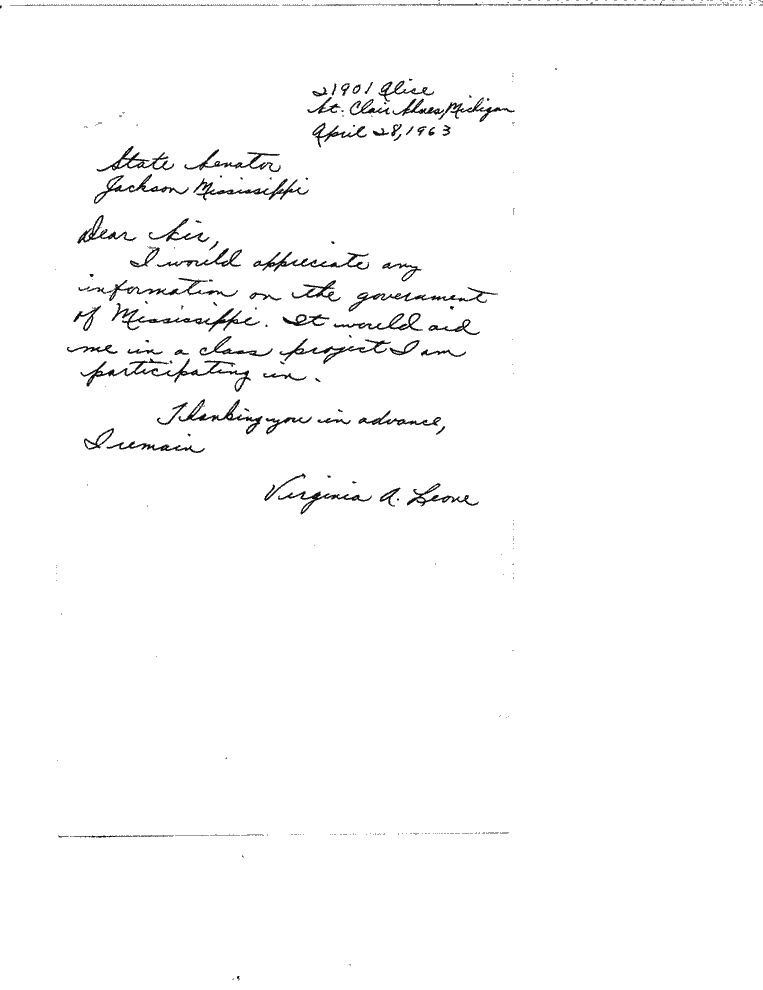 21901 Alice
St. Clair Shores, Michigan
April 28, 1963
State Senator
Jackson Mississippi
Dear Sir,
I would appreciate any
information on the government
of Mississippi. It would aid
me in a class project I am
participating in.
Thanking you in advance,
I remain
Virginia A. Leone